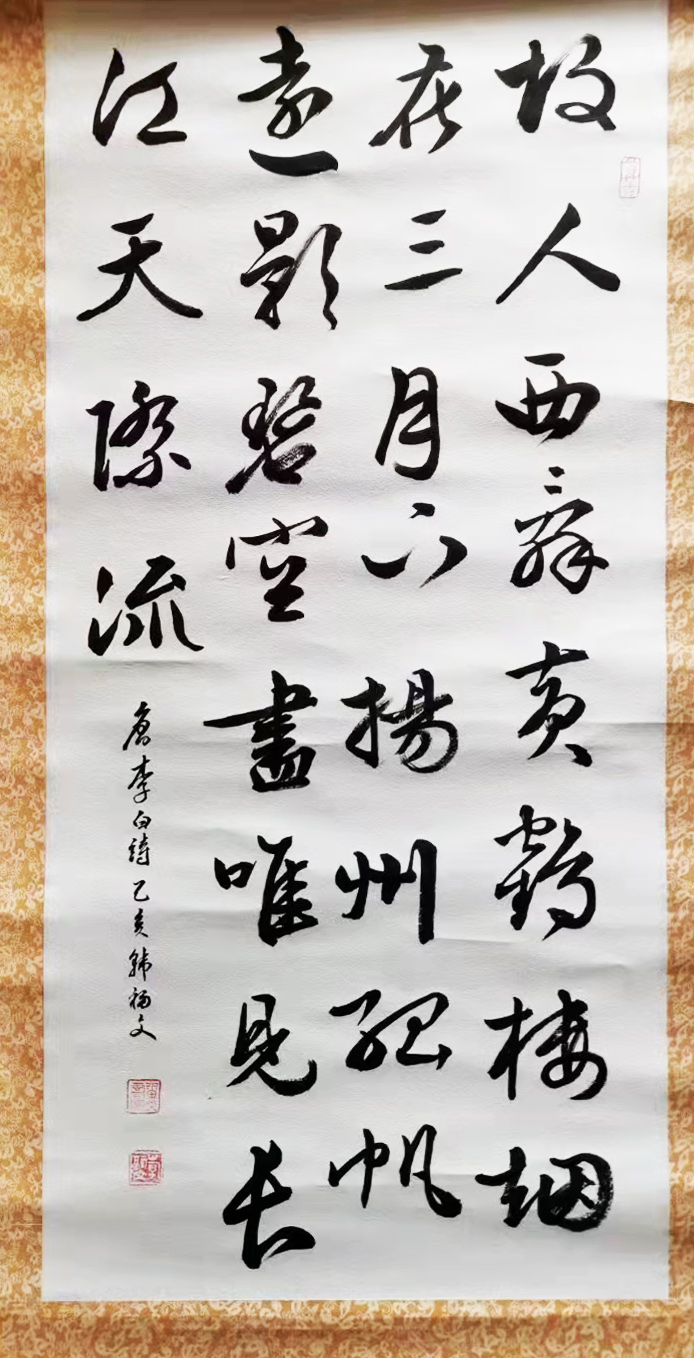 故人西辭黃鶴樓烟
花三月下揚州孤帆
遠影碧空盡唯見長
江天際流
唐李白詩乙亥韩福文